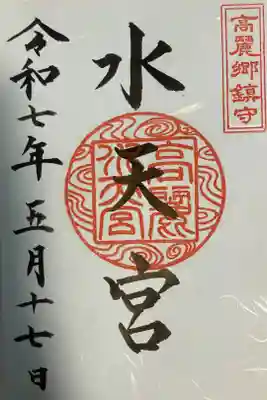 高麗郷鎮守
水天宮
高麗水天宮
令和七年五月十七日